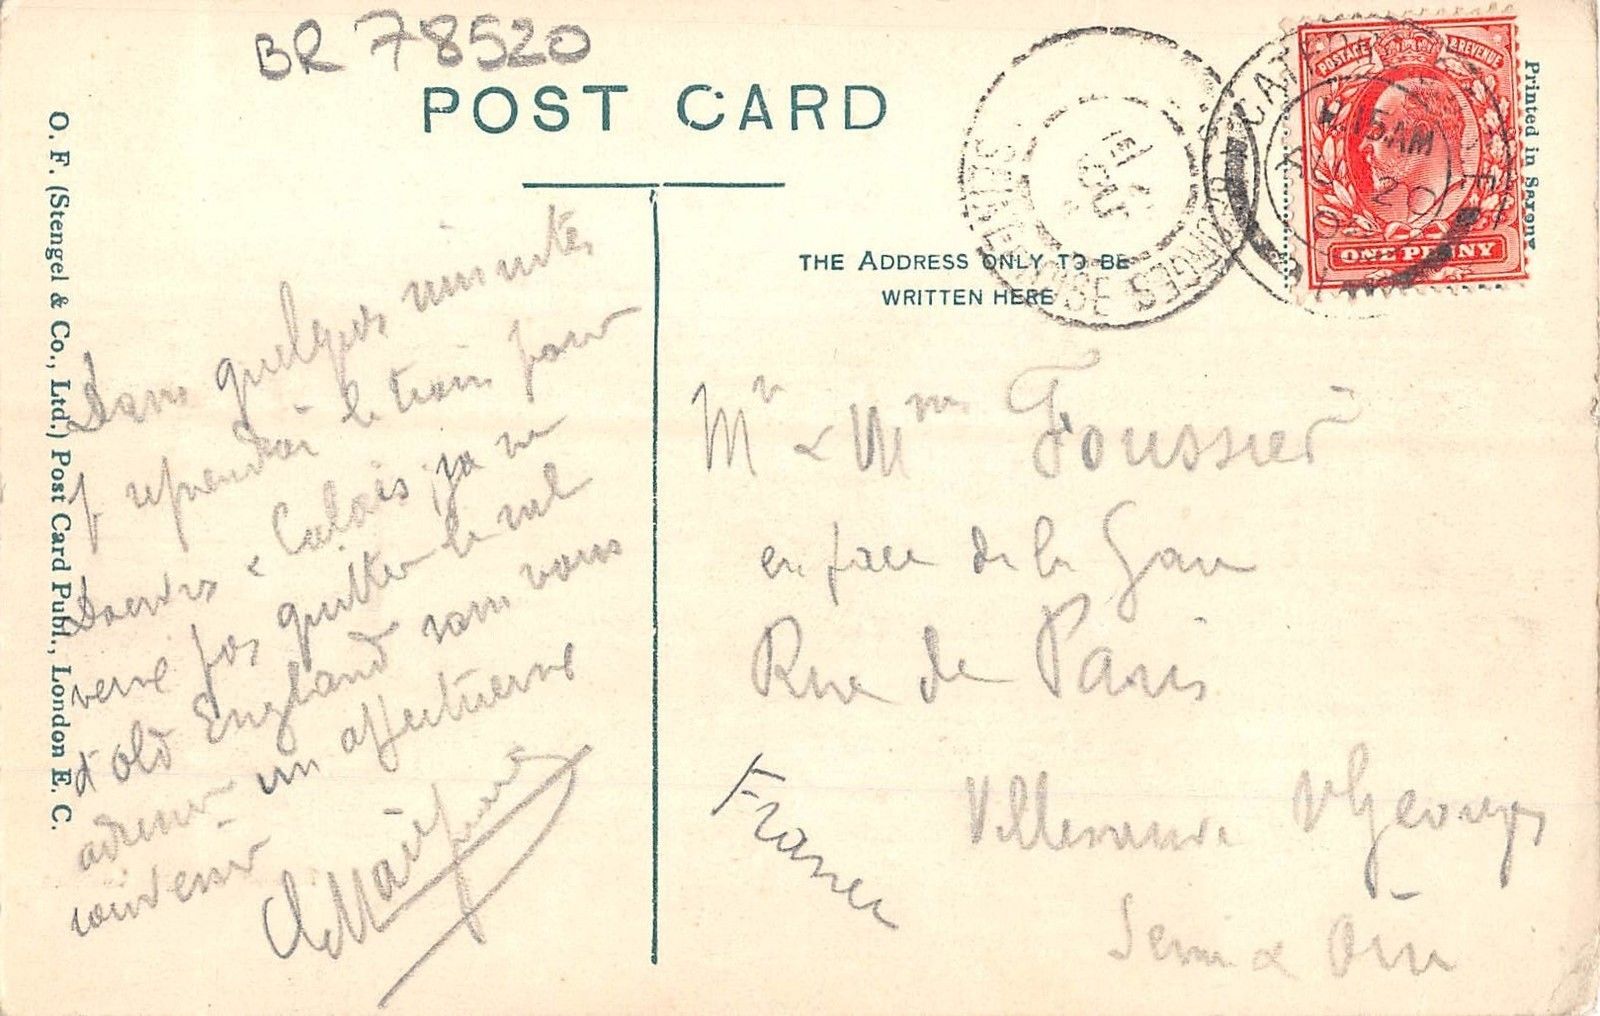 BR 78520
POST CARD
THE ADDRESS ONLY TO BE
WRITTEN HERE
Printed in Saxony
O. F. (Stengel & Co., Ltd.) Post Card Publ., London E. C.
POSTAGE & REVENUE
ONE PENNY
Dans quelques minutes
je reprendrai le train pour
Douvres & Calais, je ne
veux pas quitter le sol
d'old England sans vous
adresser un affectueux
souvenir
Mr & Mme Foussier
en face de la Gare
Rue de Paris
Villeneuve St Georges
Seine & Oise
France